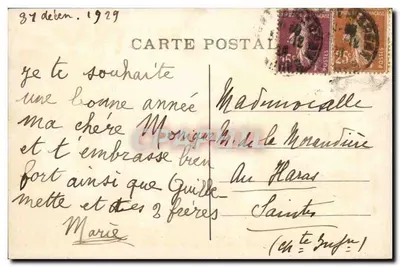 31 décem. 1929
CARTE POSTALE
Je te souhaite
une bonne année
ma chère Monique
et t'embrasse bien
fort ainsi que Guille-
mette et tes 2 frères
Marie
Mademoiselle
M. de la Morandière
Au Haras
Saintes
(Chte Infre)
25c